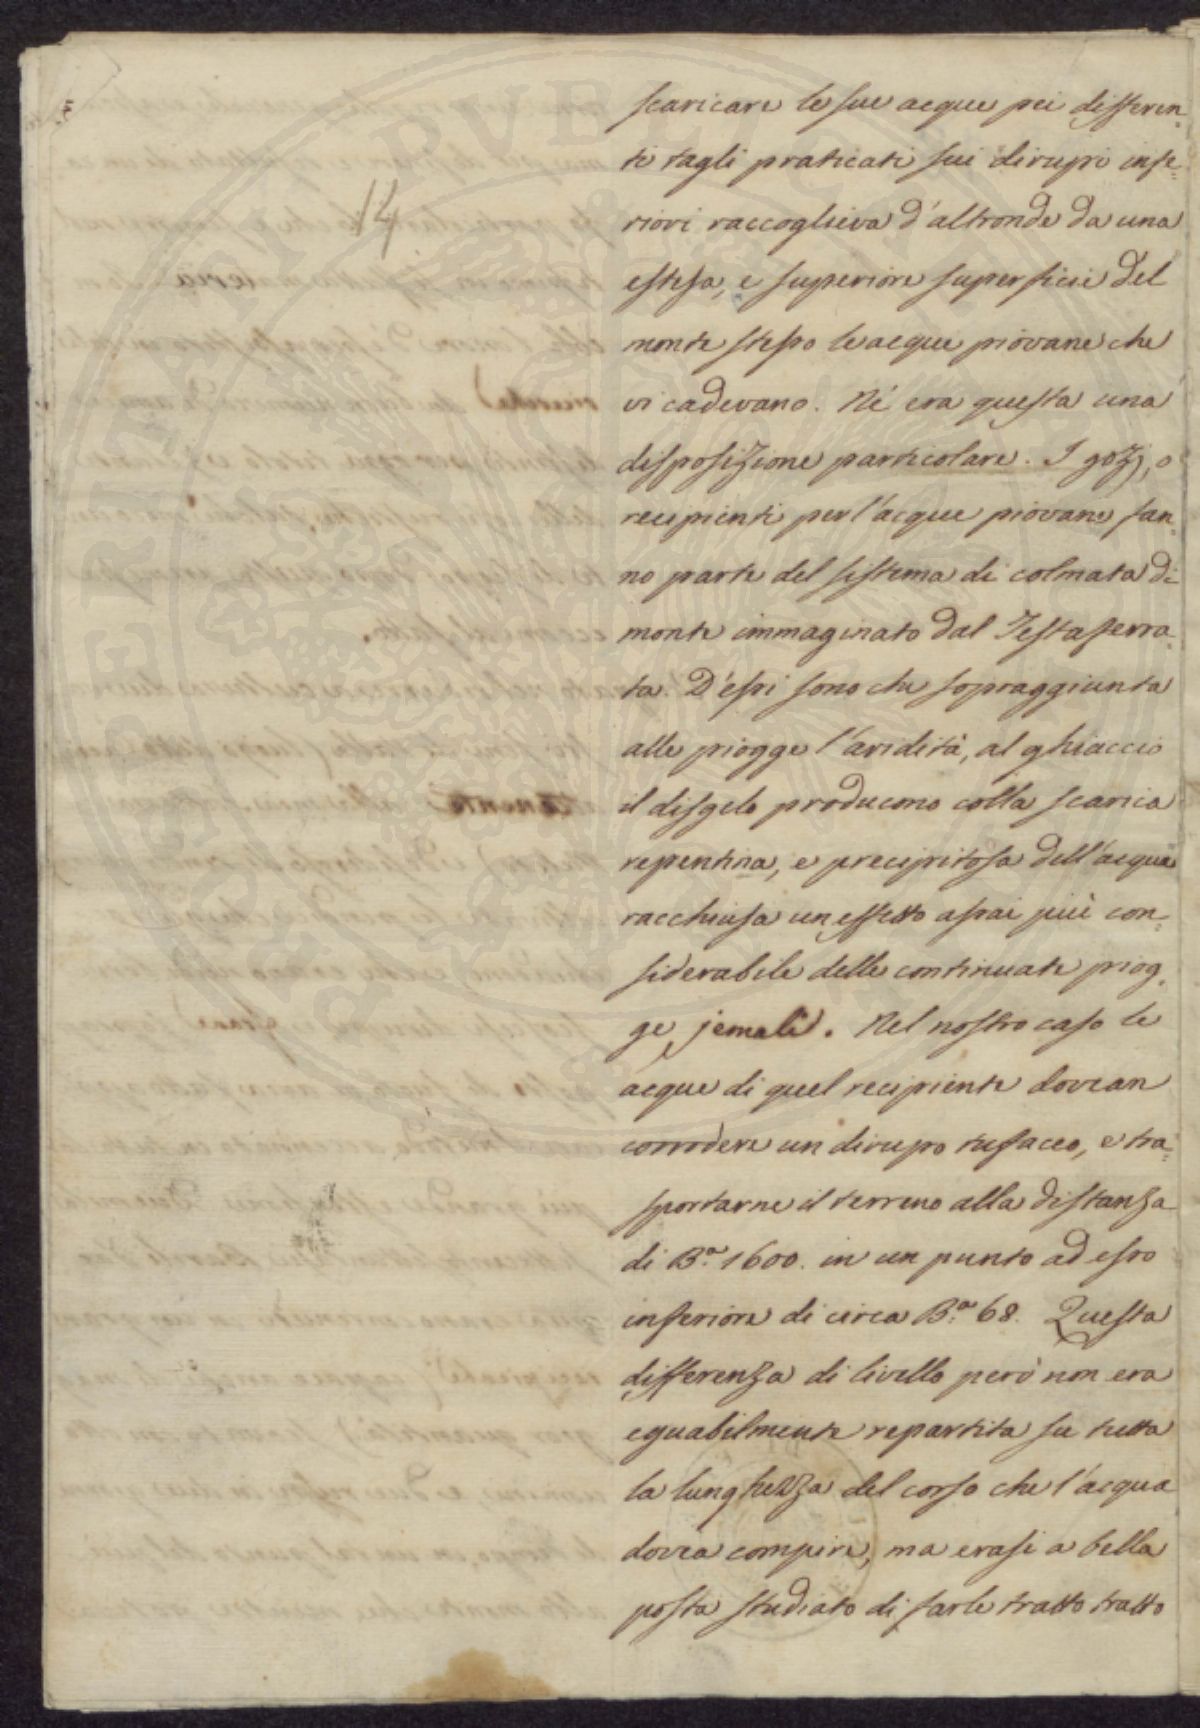 14
scaricare le sue acque pei differen=
ti tagli praticati sui dirupi infe=
riori raccoglieva d'altronde da una
estesa, e superiore superficie del
monte stesso le acque piovane che
vi cadevano. Né era questa una
disposizione particolare. I gozzi, o
recipienti per l'acque piovane fan=
no parte del sistema di colmata di
monte immaginato dal Testaferra=
ta. D'essi sono che sopraggiunta
alle piogge l'aridità, al ghiaccio
il disgelo producono colla scarica
repentina, e precipitosa dell'acqua
racchiusa un effetto assai più con=
siderabile delle continuate piog=
ge jemali. Nel nostro caso le
acque di quel recipiente dovean
corrodere un dirupo tufaceo, e tra=
sportarne il terreno alla distanza
di B.a 1600. in un punto ad esso
inferiore di circa B.a 68. Questa
differenza di livello però non era
eguabilmente repartita su tutta
la lunghezza del corso che l'acqua
dovea compire, ma erasi a bella
posta studiato di farle tratto tratto